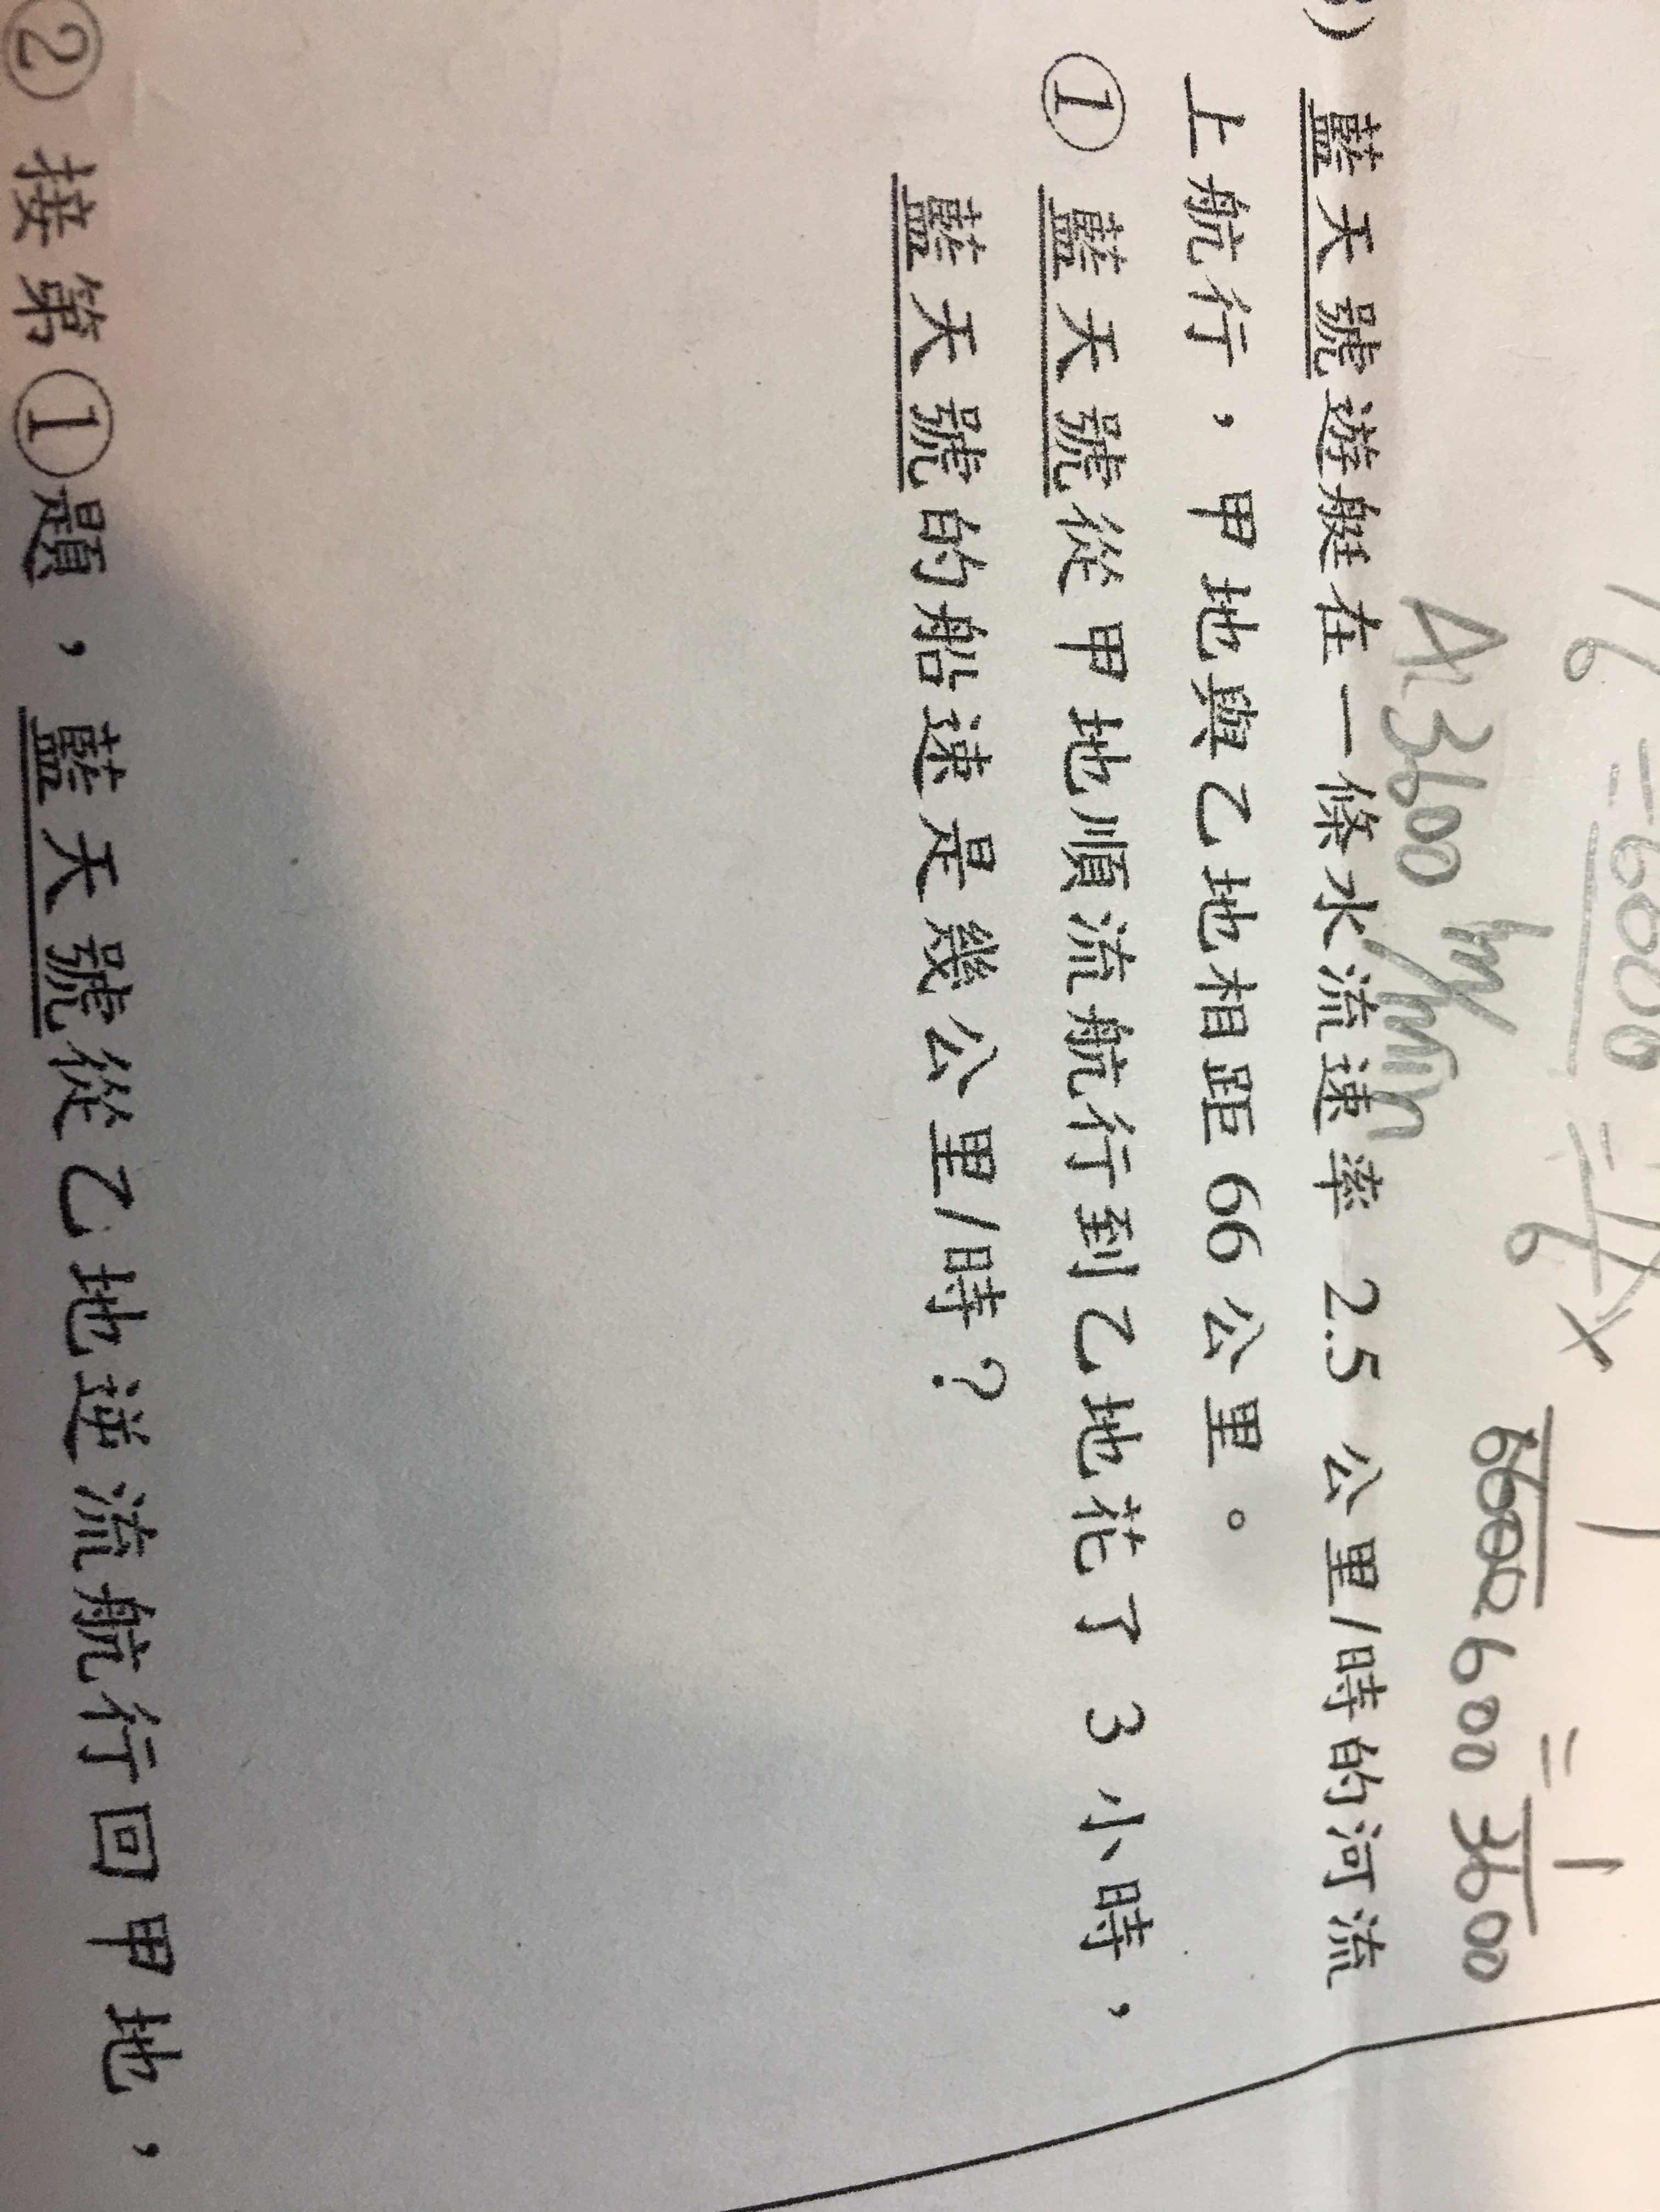 = 6000 =
6600 600 = 1
3600
A: 3600 m/min
藍天號遊艇在一條水流速率 2.5 公里/時的河流
上航行，甲地與乙地相距 66 公里。
① 藍天號從甲地順流航行到乙地花了 3 小時，
藍天號的船速是幾公里/時？
② 接第①題，藍天號從乙地逆流航行回甲地，